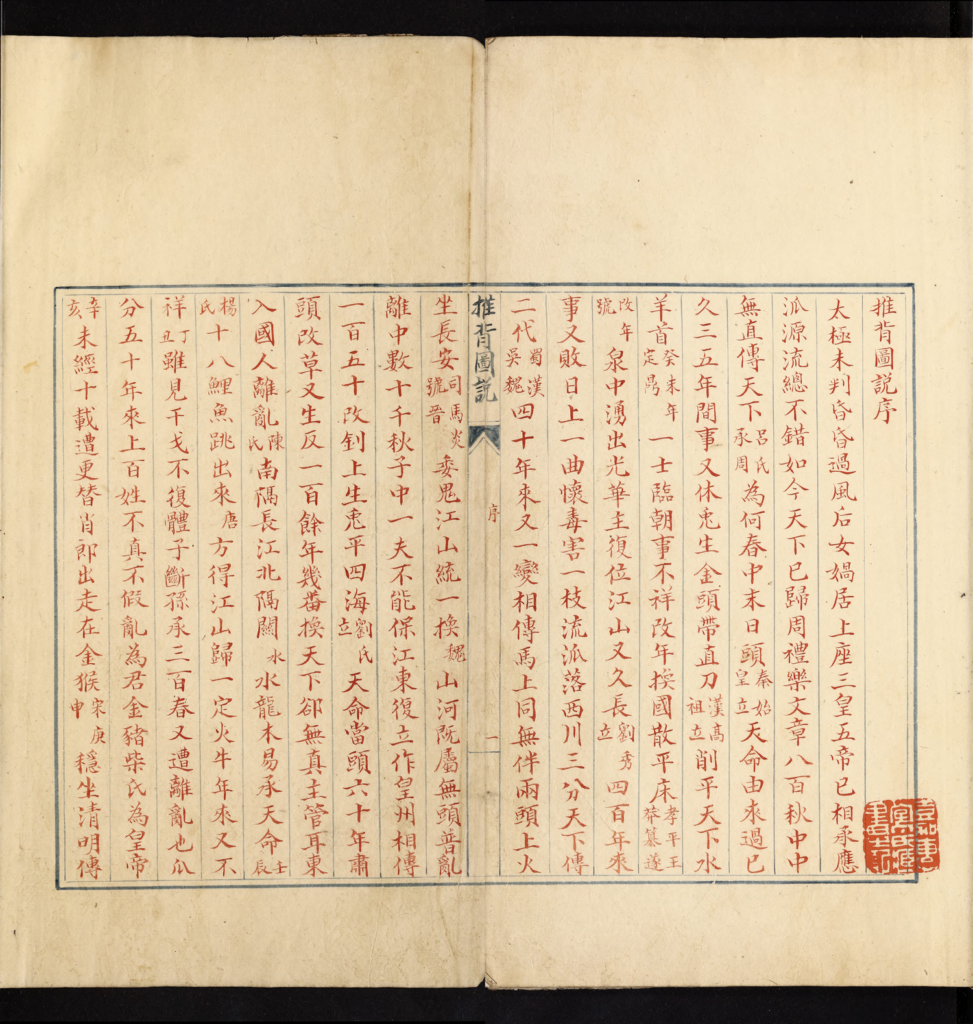 推背圖說序
太極未判昏昏過風后女媧居上座三皇五帝已相承應
泒源流總不錯如今天下已歸周禮樂文章八百秋中中
無直傳天下呂氏承周為何春中末日頭秦始皇立天命由來過已
久三五年間事又休兎生金頭帶直刀漢高祖立削平天下水
羊首癸未年定鼎一士臨朝事不祥改年換國散平床孝平王莽纂遂
改年號泉中湧出光華主復位江山又久長劉秀立四百年來
事又敗日上一曲懷毒害一枝流泒落西川三分天下傳
二代蜀漢吳魏四十年來又一變相傳馬上同無伴兩頭上火
推背圖說
序
一
坐長安司馬炎號晉委鬼江山統一換魏山河既屬無頭普亂
離中數十千秋子中一夫不能保江東復立作皇州相傳
一百五十改釗上生兎平四海劉氏立天命當頭六十年肅
頭改草又生反一百餘年幾番換天下卻無真主管耳東
入國人離亂陳氏南隔長江北隔關水水龍木易承天命壬辰
楊氏十八鯉魚跳出來唐方得江山歸一定火牛年來又不
祥丁丑雖見干戈不復體子斷孫承三百春又遭離亂也瓜
分五十年來上百姓不真不假亂為君金豬柴氏為皇帝
辛亥未經十載遭更替肖郎出走在金猴宋庚申穩坐清明傳